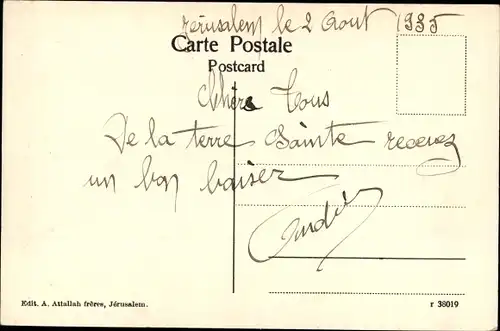 Jérusalem le 2 Aout 1935
Carte Postale
Postcard
Chère Tous
De la terre Sainte recevez
un bon baiser
André
Edit. A. Attallah frères, Jérusalem.
r 38019